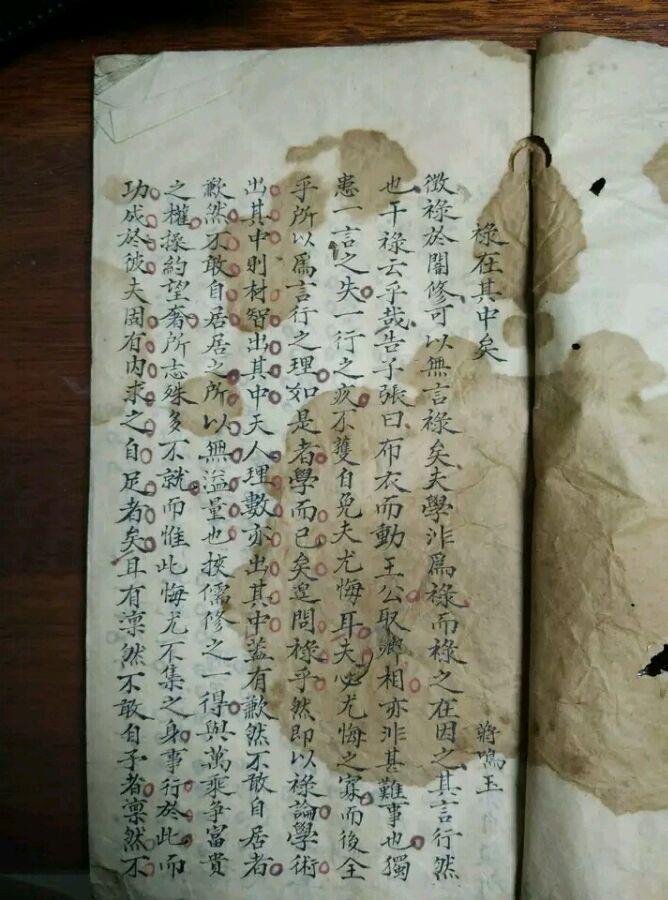 祿在其中矣 蔣鳴玉
徵祿於闇修可以無言祿矣夫學非爲祿而祿之在因之其言行然
也干祿云乎哉告子張曰布衣而動王公取卿相亦非甚難事也獨
患一言之失一行之疚不獲自免夫尤悔耳夫必尤悔之寡而後全
乎所以爲言行之理如是者學而已矣遑問祿乎然即以祿論學術
出其中則材智出其中天人理數亦出其中蓋有歉然不敢自居者
歉然不敢自居居之所以無溢量也挾儒修之一得與萬乘爭富貴
之權操約望奢所志殊多不就而惟此悔尤不集之身事行於此而
功成於彼夫固有内求之自足者矣且有凛然不敢自予者凛然不